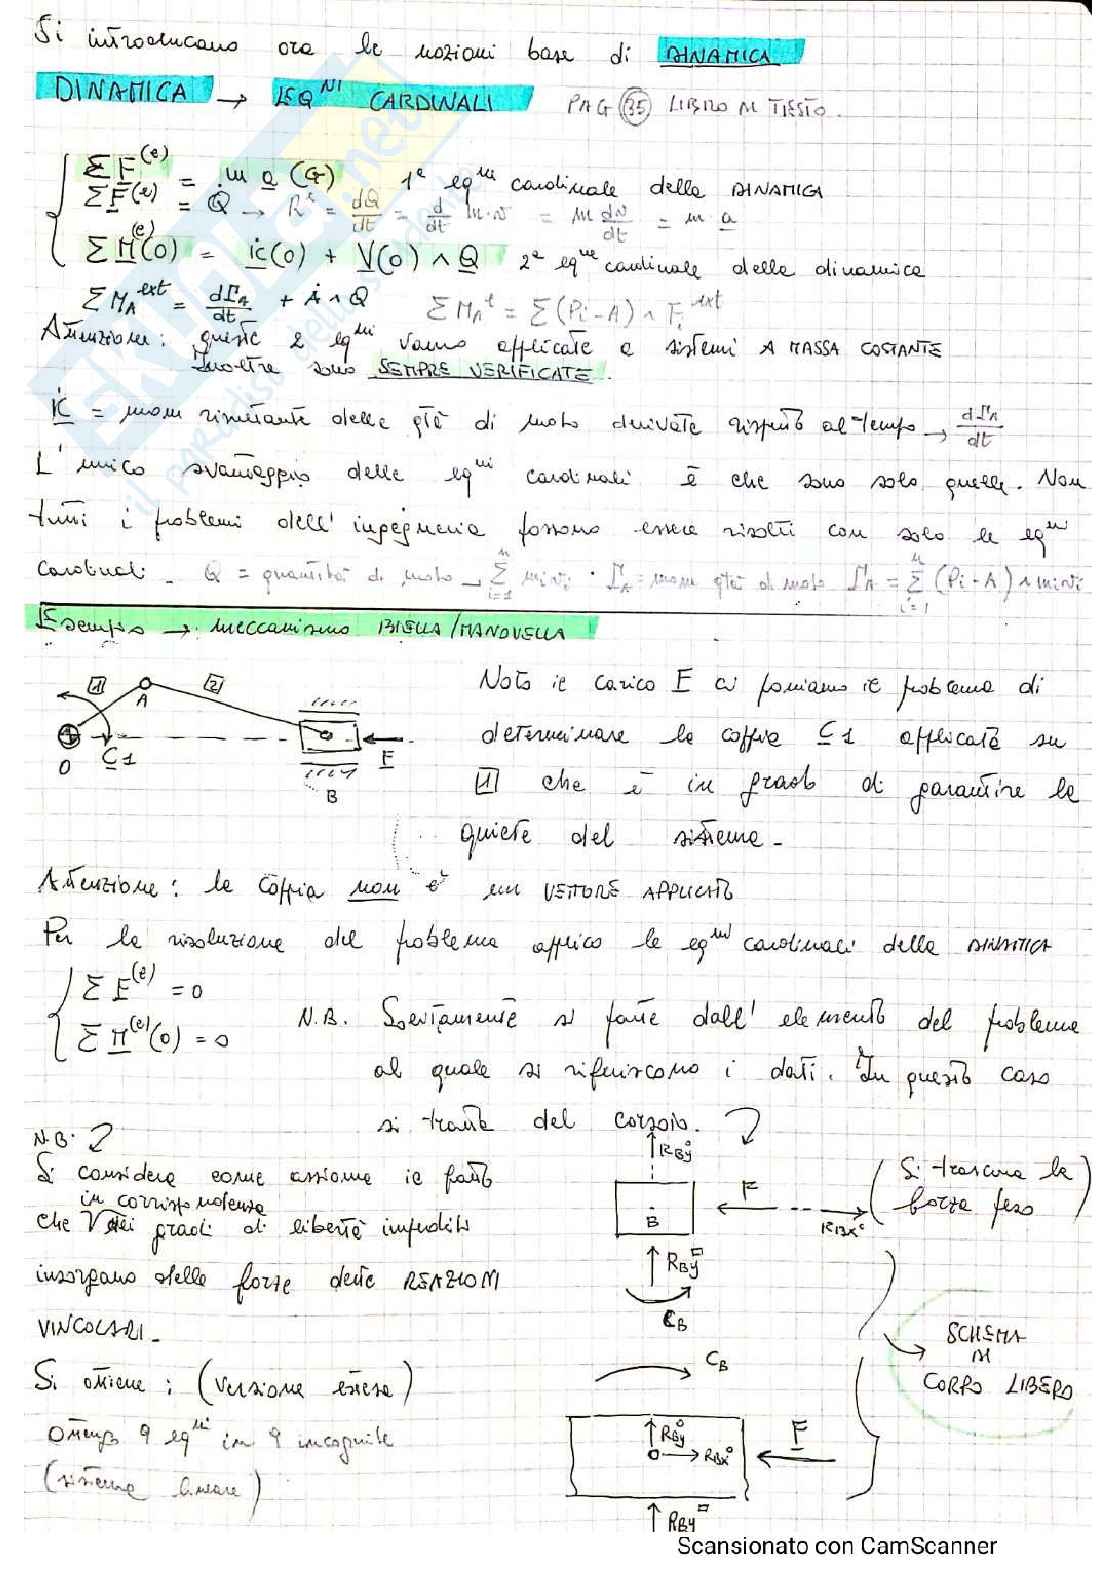 Si introducono ora le nozioni base di DINAMICA
DINAMICA → EQ^NI CARDINALI PAG 35 LIBRO DI TESTO.
ΣF^(e) = m a (G) 1^a eq^ne cardinale della DINAMICA
ΣF^(e) = Q̇ → R^ε = dQ/dt = d/dt m·v = m dv/dt = m a
ΣM^(e)(O) = K̇(O) + V(O) ∧ Q 2^a eq^ne cardinale della dinamica
ΣM_A^ext = dΓ_A/dt + Ȧ ∧ Q ΣM_A^e = Σ(Pi-A) ∧ F_i^ext
Attenzione: queste 2 eq^ni vanno applicate a sistemi A MASSA COSTANTE
Inoltre sono SEMPRE VERIFICATE.
K̇ = mom risultante delle qtà di moto derivate rispetto al tempo → dΓ_A/dt
L'unico svantaggio delle eq^ni cardinali è che sono solo quelle. Non
tutti i problemi dell'ingegneria possono essere risolti con solo le eq^ni
cardinali. Q = quantità di moto → Σ_{i=1}^n mivi · Γ_A = mom qtà di moto Γ_A = Σ_{i=1}^n (Pi-A) ∧ mivi
Esempio → meccanismo BIELLA/MANOVELLA
1 2
A
O C1 F
B
Noto il carico F ci poniamo il problema di
determinare la coppia C1 applicata su
1 che è in grado di garantire la
quiete del sistema.
Attenzione: la coppia non è un VETTORE APPLICATO
Per la risoluzione del problema applico le eq^ni cardinali della DINAMICA
ΣF^(e) = 0
ΣM^(e)(O) = 0
N.B. Solitamente si parte dall'elemento del problema
al quale si riferiscono i dati. In questo caso
si tratta del corsoio.
N.B.
Si considera come assioma il fatto
che in corrispondenza dei gradi di libertà impediti
insorgano delle forze dette REAZIONI
VINCOLARI.
R_By°
B F R_Bx°
R_By□
C_B
(Si trascura la
forza peso)
SCHEMA
DI
CORPO LIBERO
Si ottiene: (versione estesa)
Ottengo 9 eq^ni in 9 incognite
(sistema lineare)
C_B
R_By°
R_Bx°
F
R_By□
Scansionato con CamScanner